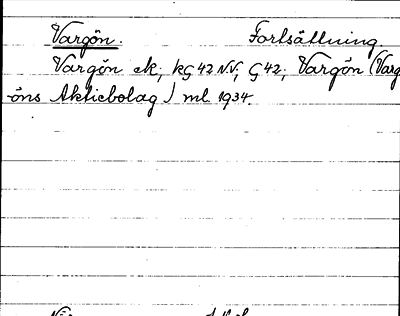 Vargön. Fortsättning
Vargön ek; kG 42 NV, G 42; Vargön (Varg
-öns Aktiebolag) ml 1934.